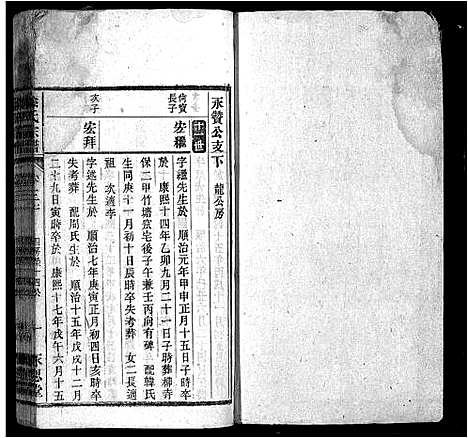 永贊公支下 龍公房
十世
尚賓長子
宏繼
字繼先生於 順治元年甲申正月初四日子時卒
於 康熙十四年乙卯九月二十一日子時葬柳寺
保二甲竹塘窊宅後子午兼壬丙向有碑 配韓氏
生同庚十一月初十日辰時卒失考葬 女二長適
祖 次適李
次子
宏拜
字 先生於 順治七年庚寅正月初四日亥時卒
失考葬 配周氏生於 順治十五年戊戌十二月
二十九日寅時卒於 康熙十七年戊午六月十五
氏宗譜
一 永思堂